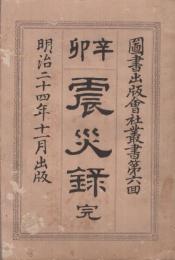 圖書出版會社叢書第六回
辛卯
震災錄 完
明治二十四年十二月出版